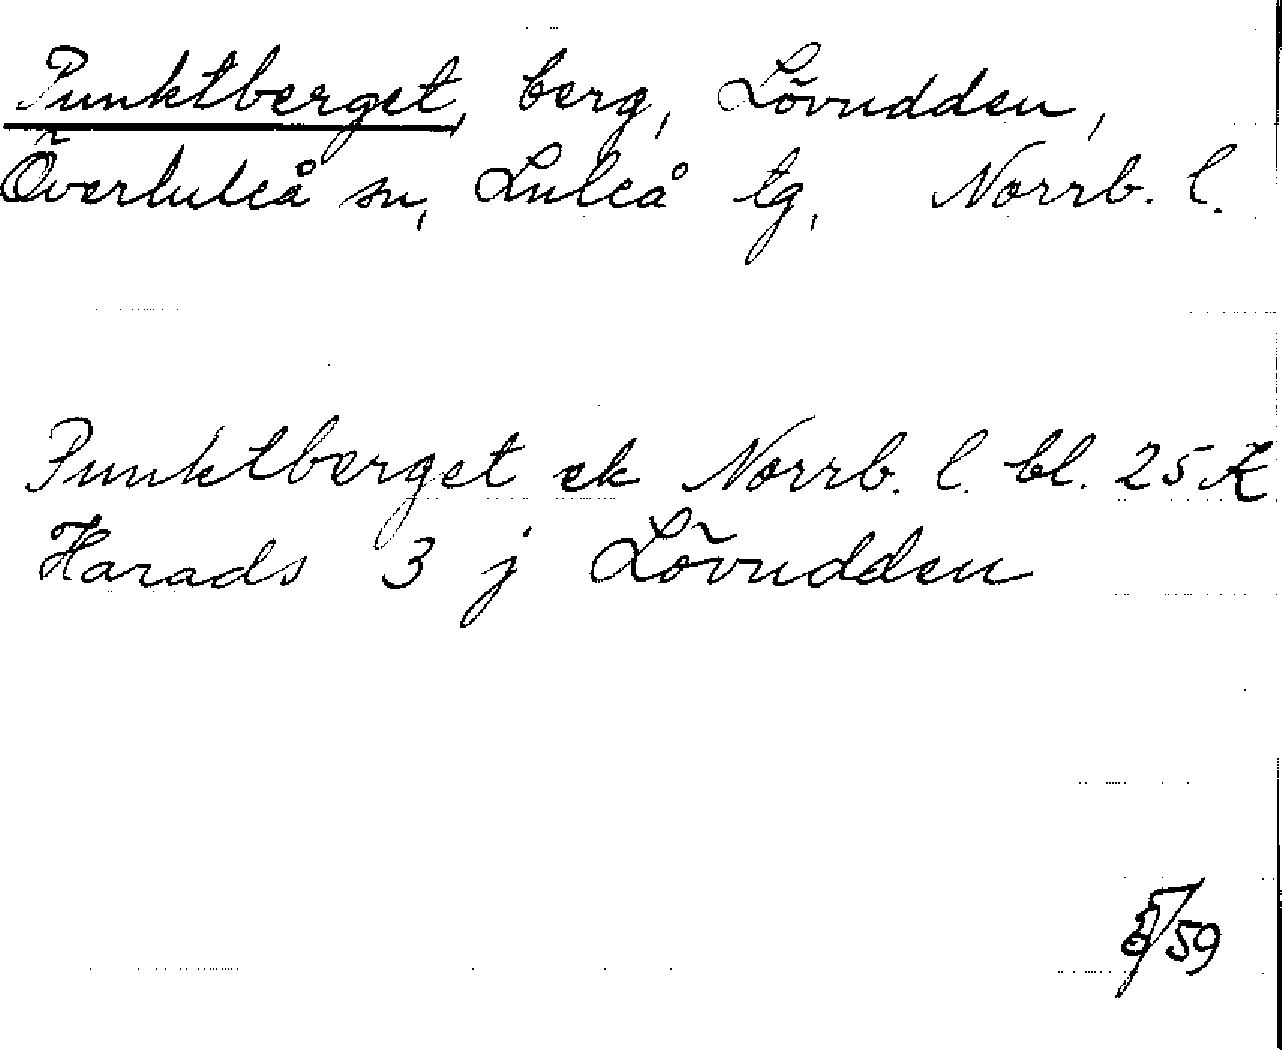 Punktberget, berg, Lövudden,
Överluleå sn, Luleå tg, Norrb. l.
Punktberget ek Norrb. l. bl. 25 K
Harads 3 j Lövudden